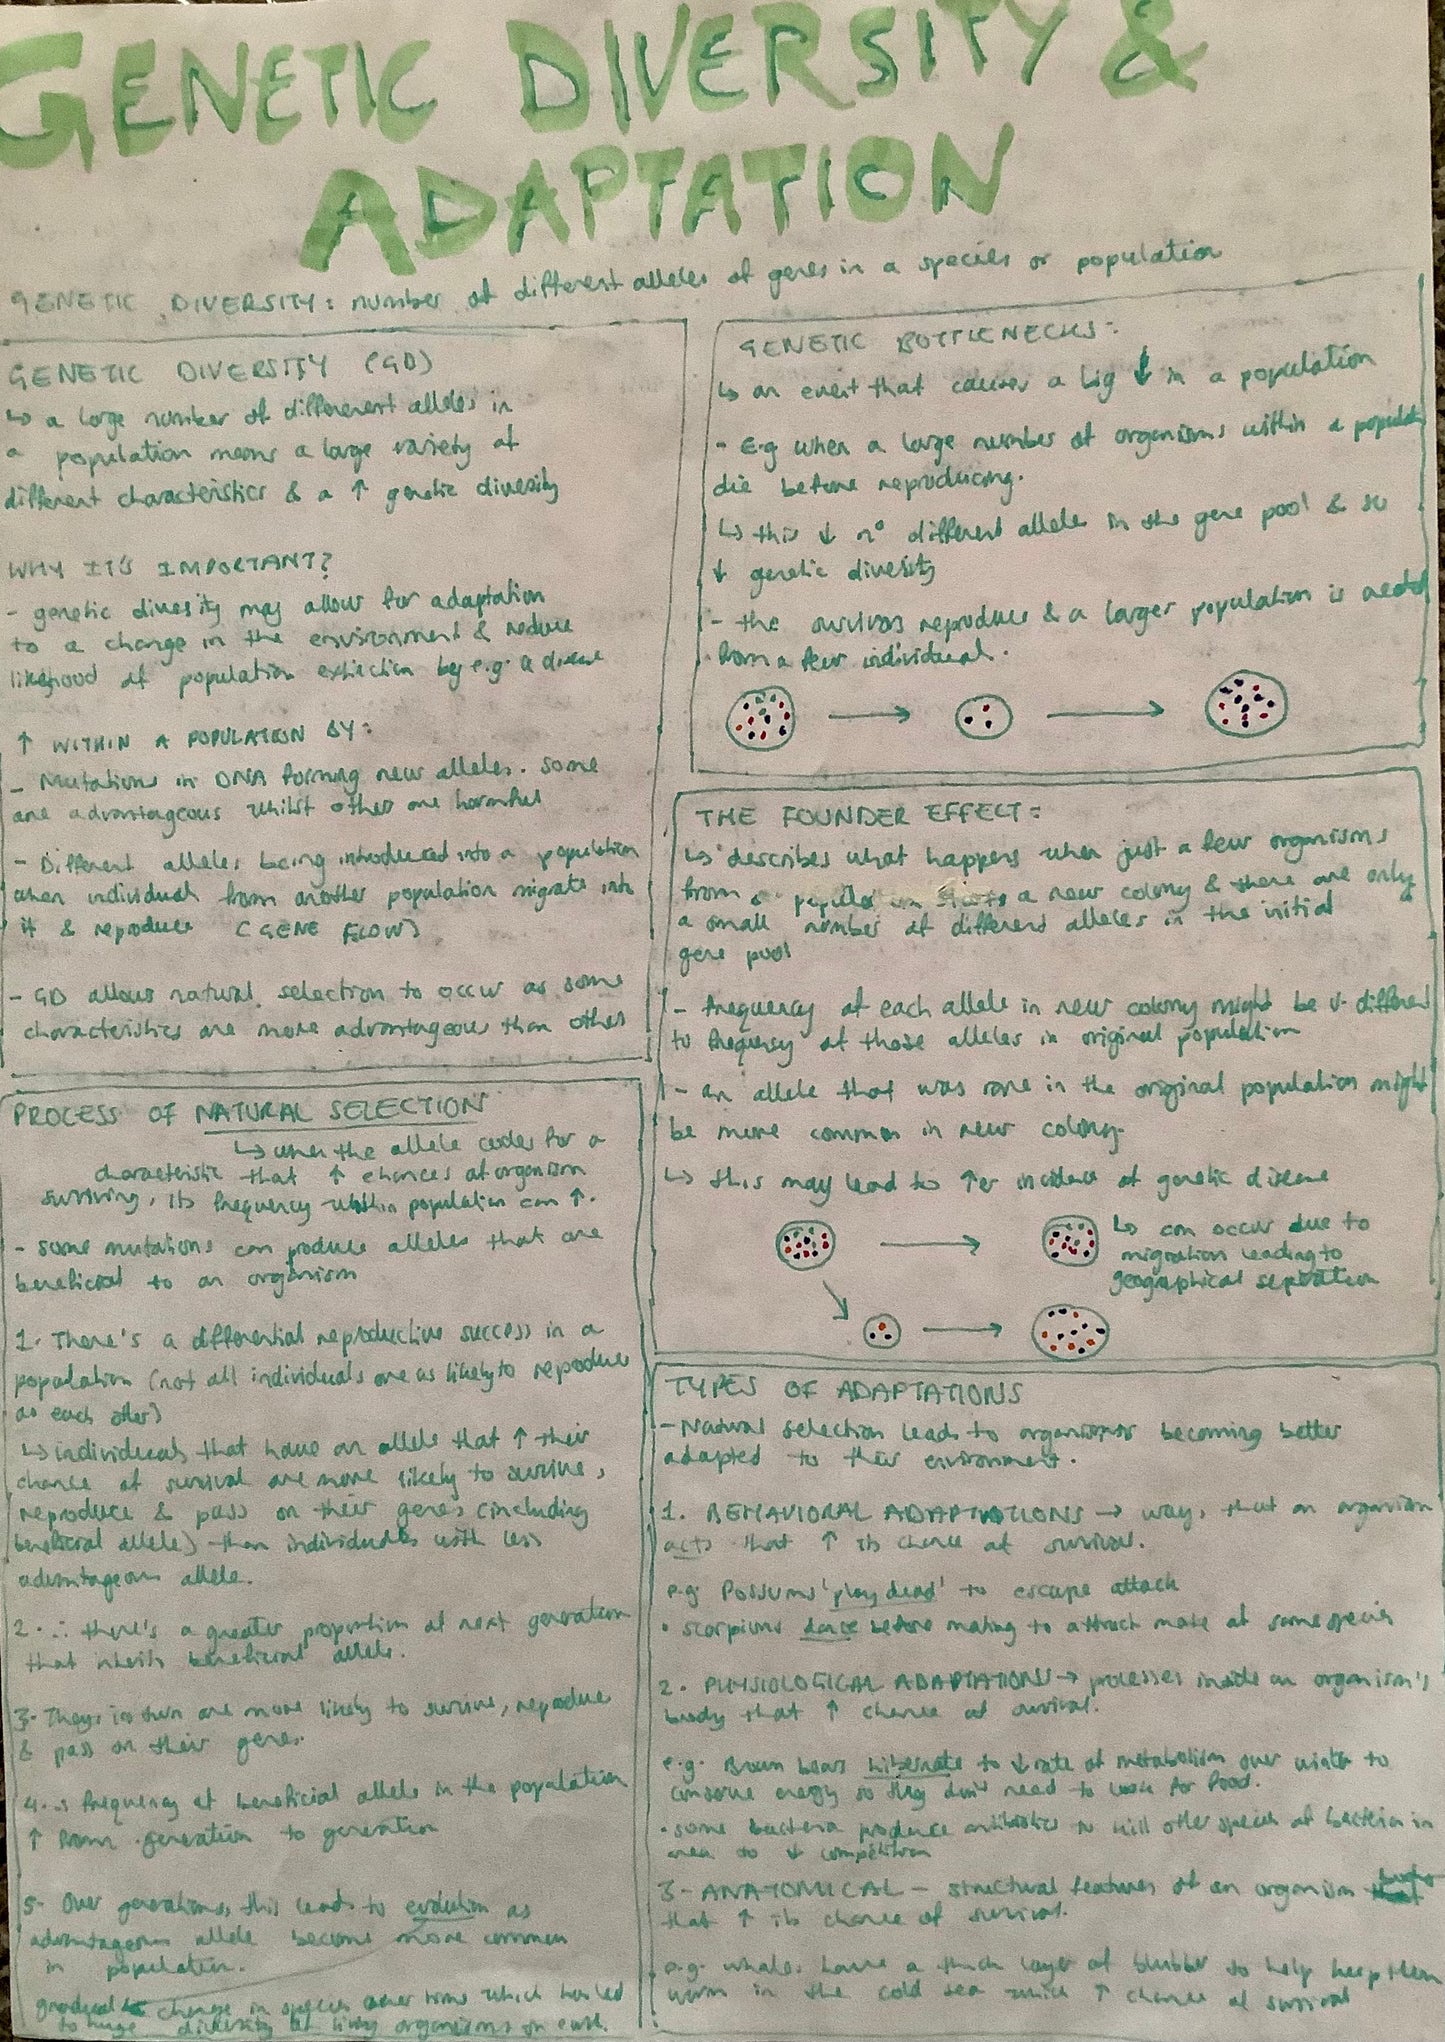 GENETIC DIVERSITY &
ADAPTATION
GENETIC DIVERSITY: number of different alleles of genes in a species or population
GENETIC DIVERSITY (GD)
↳ a large number of differerent alleles in
a population means a large variety of
different characteristics & a ↑ genetic diversity
WHY IT'S IMPORTANT?
- genetic diversity may allow for adaptation
to a change in the environment & reduce
likehood of population extinction by e.g. a disease
↑ WITHIN A POPULATION BY:
- Mutations in DNA forming new alleles. Some
are advantageous whilst other are harmful
- Different alleles being introduced into a population
when individual from another population migrate into
it & reproduce (GENE FLOW)
- GD allows natural selection to occur as some
characteristics are more advantageous than other
PROCESS OF NATURAL SELECTION
↳ when the allele codes for a
characteristic that ↑ chances of organism
surviving, its frequency within population can ↑.
- some mutations can produce alleles that are
beneficial to an organism
1. There's a differential reproductive success in a
population (not all individuals are as likely to reproduce
as each other)
↳ individuals that have an allele that ↑ their
chance of survival are more likely to survive,
reproduce & pass on their genes (including
beneficial allele) than individuals with less
advantageous allele.
2. ∴ there's a greater proportion of next generation
that inherits beneficial allele.
3. They in turn are more likely to survive, reproduce
& pass on their genes.
4. ∴ frequency of beneficial allele in the population
↑ from generation to generation
5- Over generations, this leads to evolution as
advantageous allele become more common
in population.
gradual change in species over time which has led
to huge diversity of living organisms on earth.
GENETIC BOTTLENECKS:
↳ an event that causes a big ↓ in a population
- E.g when a large number of organisms within a populat
die before reproducing.
↳ this ↓ n° different allele in the gene pool & so
↓ genetic diversity
- the survivors reproduce & a larger population is created
from a few individual.
THE FOUNDER EFFECT:
↳ describes what happens when just a few organisms
from a population starts a new colony & there are only
a small number of different alleles in the initial
gene pool
- frequency of each allele in new colony might be v. different
to frequency of those alleles in original population
- an allele that was rare in the original population might
be more common in new colony.
↳ this may lead to ↑er incidence of genetic disease
↳ can occur due to
migration leading to
geographical separation
TYPES OF ADAPTATIONS
- Natural selection leads to organisms becoming better
adapted to their environment.
1. BEHAVIORAL ADAPTATIONS → ways that an organism
acts that ↑ its chance of survival.
e.g Possums 'play dead' to escape attack
• scorpions dance before mating to attract mate of same species
2. PHYSIOLOGICAL ADAPTATIONS → processes inside an organism's
body that ↑ chance of survival.
e.g. Brown bears hibernate to ↓ rate of metabolism over winter to
conserve energy so they don't need to look for food.
• some bacteria produce antibiotics to kill other species of bacteria in
area to ↓ competition
3- ANATOMICAL - structural features of an organism
that ↑ its chance of survival.
e.g. whales have a thick layer of blubber to help keep them
warm in the cold sea which ↑ chance of survival